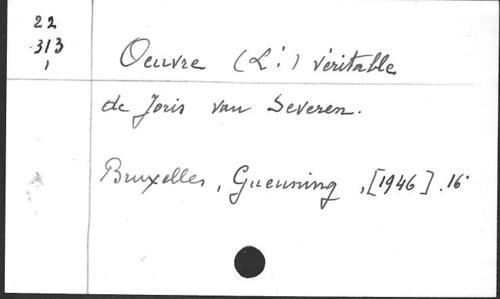 22
313
1
Oeuvre (L') véritable
de Joris van Severen.
Bruxelles, Gueuning, [1946]. 16°